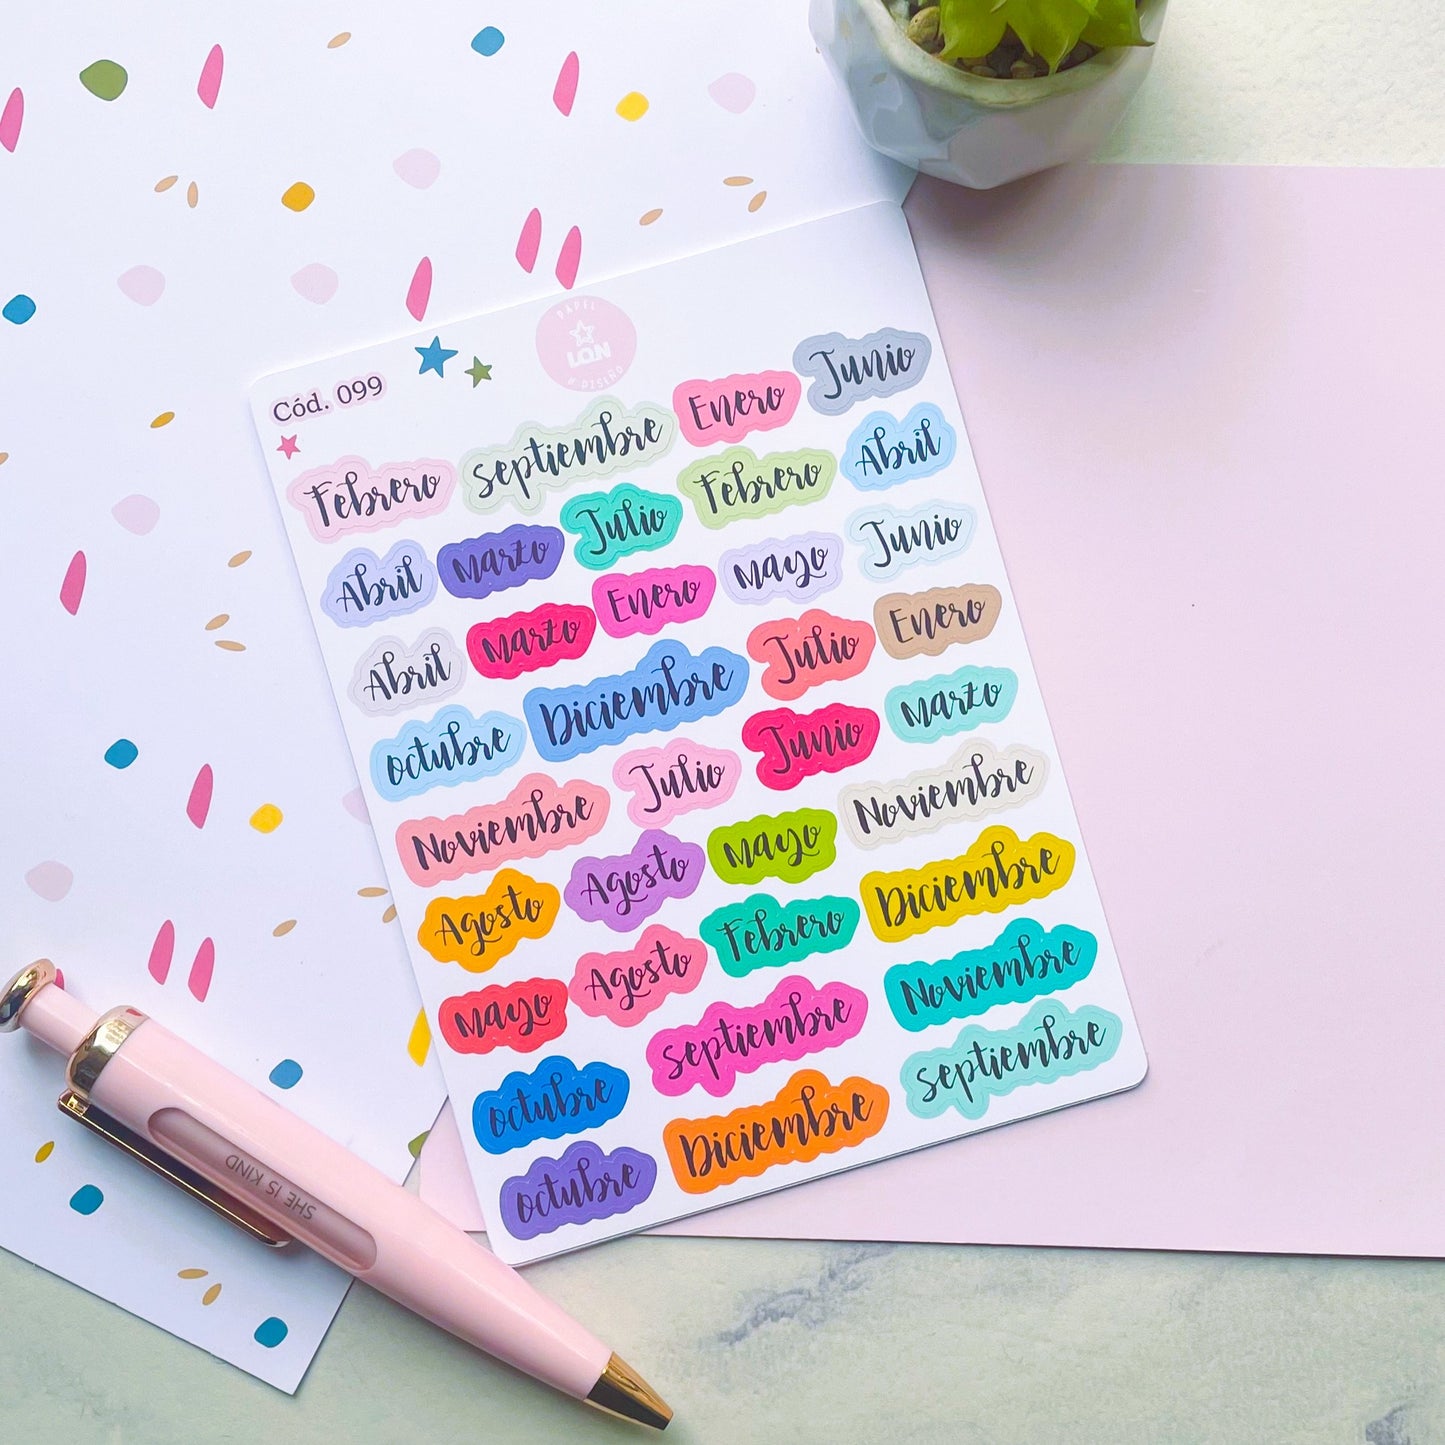 PAPEL
LQN
& DISEÑO
Cód. 099
Junio
Enero
septiembre
Febrero
Abril
Febrero
Julio
Marzo
Abril
Junio
Mayo
Enero
Marzo
Abril
Enero
Julio
Diciembre
octubre
Marzo
Junio
Julio
Noviembre
Noviembre
Mayo
Agosto
Agosto
Diciembre
Febrero
Agosto
Mayo
Noviembre
septiembre
octubre
septiembre
Diciembre
octubre
SHE IS KIND